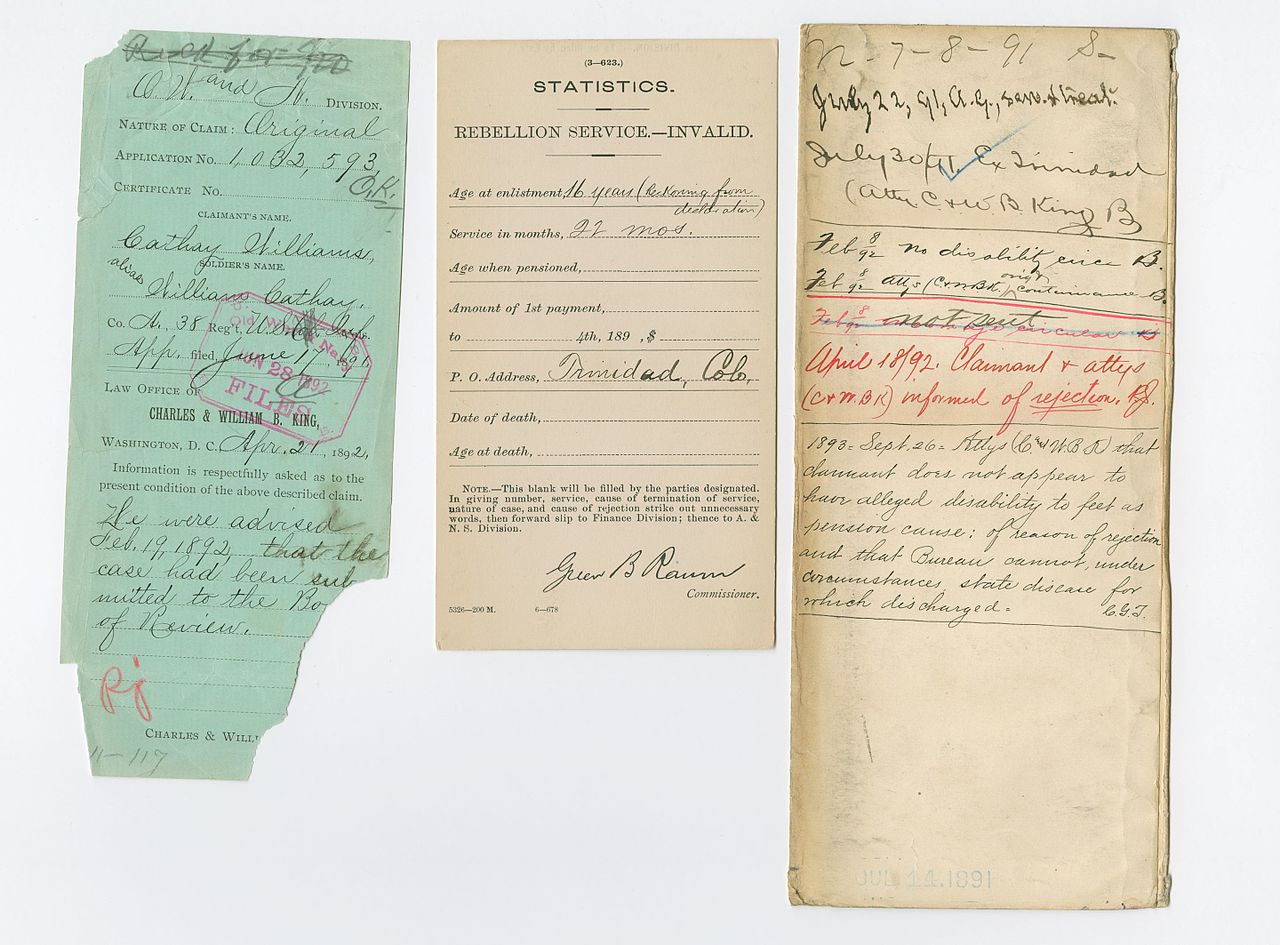 O.W. and N. DIVISION.
NATURE OF CLAIM: Original
APPLICATION NO. 1,032,593
O.K.
CERTIFICATE NO.
CLAIMANT'S NAME.
Cathay Williams,
SOLDIER'S NAME.
alias William Cathay.
Co. A, 38 Reg't, U.S. Inf.
App. filed, June 17, 1891
Old War
No. 3
JUN 28 1892
FILES
LAW OFFICE OF
CHARLES & WILLIAM B. KING,
WASHINGTON, D. C. Apr. 21, 1892,
Information is respectfully asked as to the
present condition of the above described claim.
We were advised
Feb. 19, 1892, that the
case had been sub
mitted to the Bo
of Review.
Rj
CHARLES & WILL
11-117
(3—623.)
STATISTICS.
REBELLION SERVICE.—INVALID.
Age at enlistment, 16 years (Reckoning from
declaration)
Service in months, 22 mos.
Age when pensioned,
Amount of 1st payment,
to 4th, 189 , $
P. O. Address, Trinidad, Colo,
Date of death,
Age at death,
NOTE.—This blank will be filled by the parties designated.
In giving number, service, cause of termination of service,
nature of case, and cause of rejection strike out unnecessary
words, then forward slip to Finance Division; thence to A. &
N. S. Division.
Green B Raum
Commissioner.
5326—200 M. 6—678
N- 7-8-91 S-
July 22, 91, A.G., serv. & treat.
July 30/91. Ex Trinidad
(Atty C & W. B. King B
Feb 8/92 no disability B.
Feb 8/92 Attys (C & W.B.K.) orig B.
Feb 8/92 not sent circular
April 18/92. Claimant & attys
(C & W. B K) informed of rejection. Rj.
1893 = Sept. 26 = Attys (C. and W. B K) that
claimant does not appear to
have alleged disability to feet as
pension cause; of reason of rejection
and that Bureau cannot, under
circumstances state disease for
which discharged = C.G.T.
JUL 14.1891